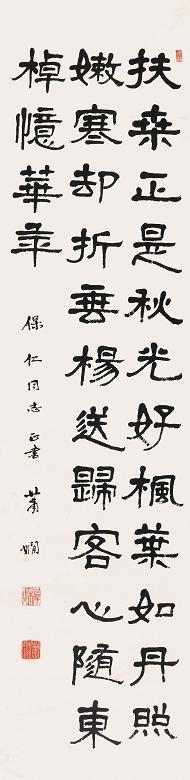 扶桑正是秋光好楓葉如丹照
嫩寒却折垂楊送歸客心隨東
棹憶華年
保仁同志正書 蕭嫻